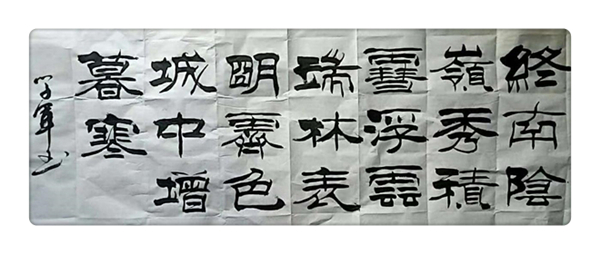 終南陰
嶺秀積
雪浮雲
端林表
明霽色
城中增
暮寒
学軍书